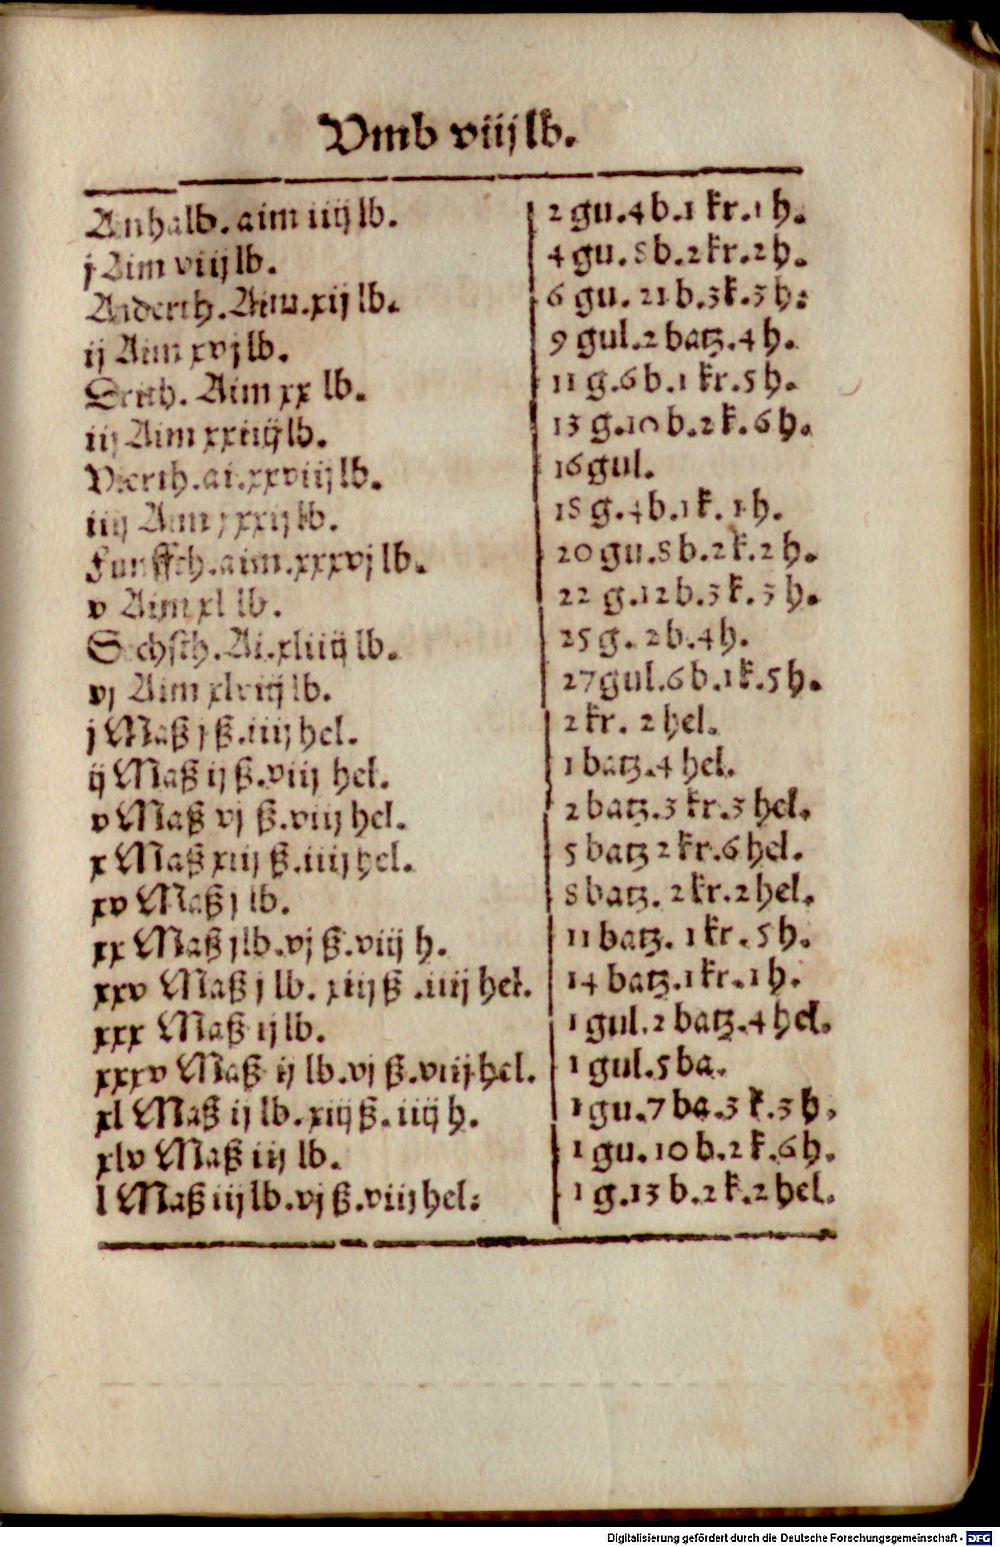 Vmb viijlb.
Anhalb. aim iiijlb. 2 gu.4b.1 kr.1 h.
j Aim viijlb. 4 gu. 8b.2kr.2h.
Anderth. Aim.xijlb. 6 gu. 21b.3k.3h:
ij Aim xvjlb. 9 gul.2 batz.4h.
Drith. Aim xx lb. 11 g.6b.1 kr.5h.
iij Aim xxiiijlb. 13 g.10 b.2k.6h.
Vierth.ai.xxviijlb. 16gul.
iiij Aim xxxijlb. 18 g.4b.1k. 1h.
Funffth.aim.xxxvjlb. 20 gu.8b.2k.2h.
v Aim xl lb. 22 g.12b.3k.3h.
Sechsth. Ai.xliiijlb. 25g. 2b.4h.
vj Aim xlviijlb. 27gul.6b.1k.5h.
j Maß j ß.iiijhel. 2 kr. 2 hel.
ij Maß ij ß.viij hel. 1 batz.4 hel.
v Maß vj ß.viijhel. 2 batz.3 kr.3 hel.
x Maß xiij ß.iiijhel. 5 batz 2 kr.6 hel.
xv Maß j lb. 8 batz. 2 kr.2hel.
xx Maß jlb.vj ß.viij h. 11 batz. 1 kr. 5h.
xxv Maß j lb. xiijß .iiijhel. 14 batz.1kr.1h.
xxx Maß ijlb. 1 gul.2 batz.4 hel.
xxxv Maß ij lb.vj ß.viijhel. 1 gul.5 ba.
xl Maß ij lb.xiijß.iiij h. 1 gu.7 ba.3 k.3h.
xlv Maß iij lb. 1 gu.10b.2k.6h.
l Maß iijlb.vj ß.viijhel: 1 g.13 b.2k.2hel.
Digitalisierung gefördert durch die Deutsche Forschungsgemeinschaft - DFG